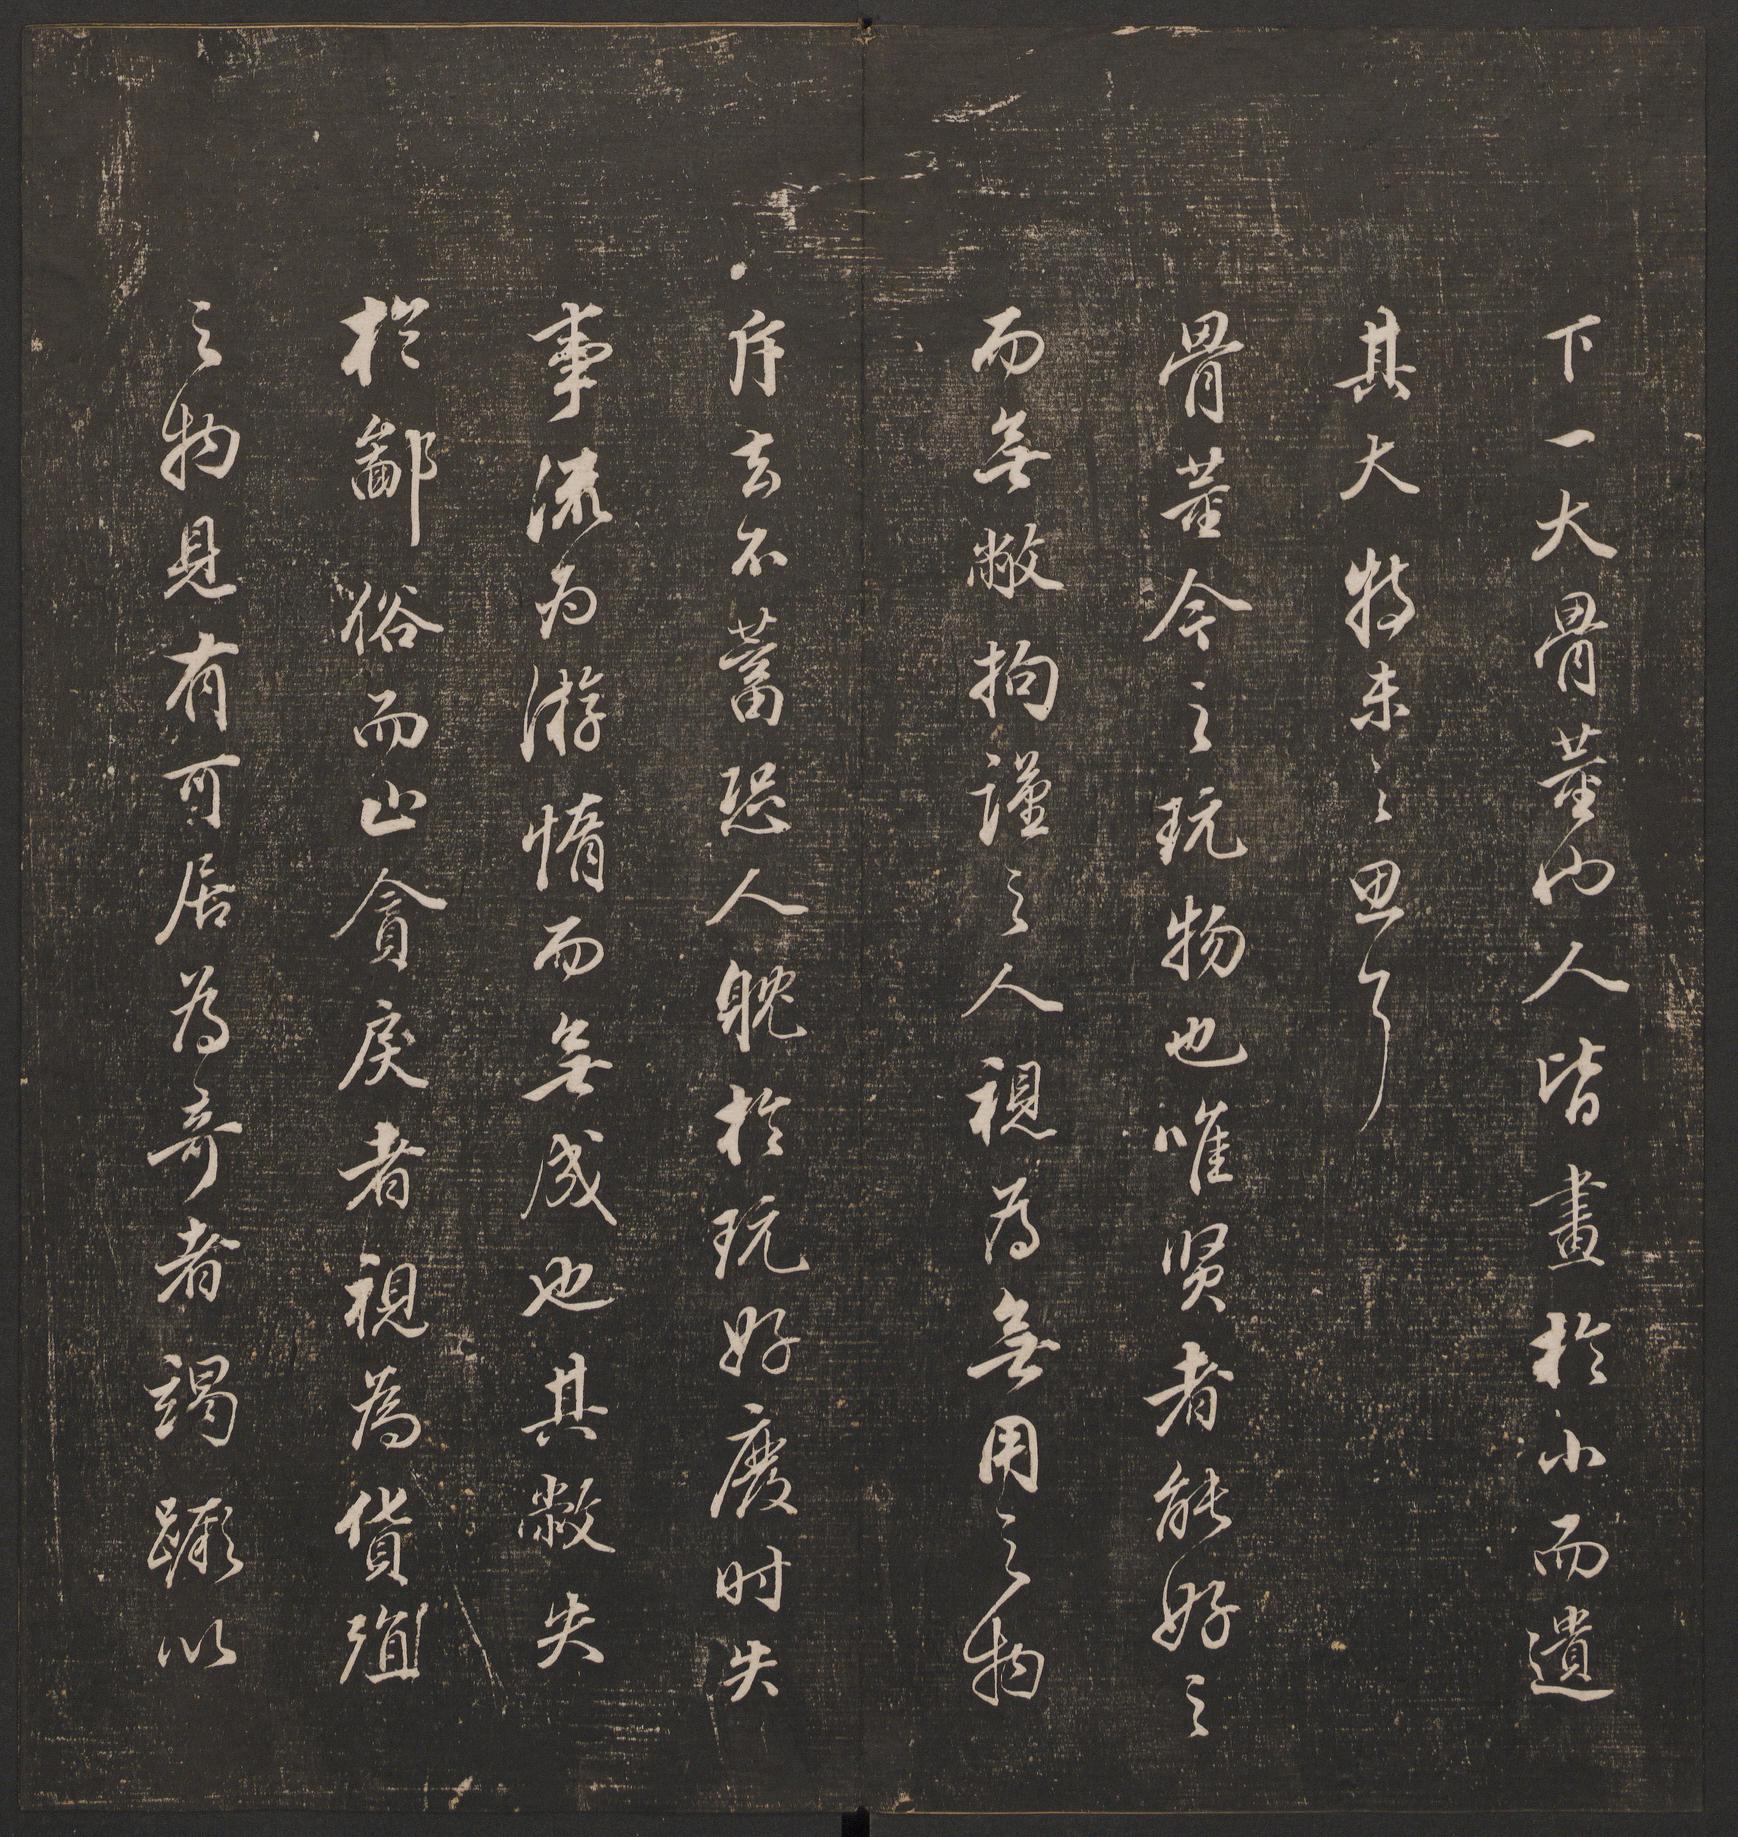 下一大骨董小人皆畫於小而遺
其大特未之思耳
骨董今之玩物也唯賢者能好之
而無敝拘謹之人視為無用之物
斥去不蓄恐人躭於玩好廢时失
事流为游惰而無成也其敝失
於鄙俗而止貪戾者視為貨殖
之物見有可居為奇者竭蹷以